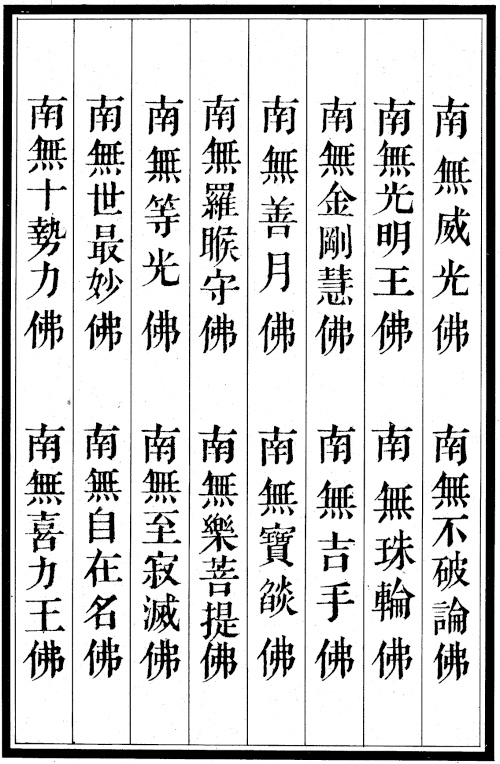 南無威光佛 南無不破論佛
南無光明王佛 南無珠輪佛
南無金剛慧佛 南無吉手佛
南無善月佛 南無寶燄佛
南無羅睺守佛 南無樂菩提佛
南無等光佛 南無至寂滅佛
南無世最妙佛 南無自在名佛
南無十勢力佛 南無喜力王佛